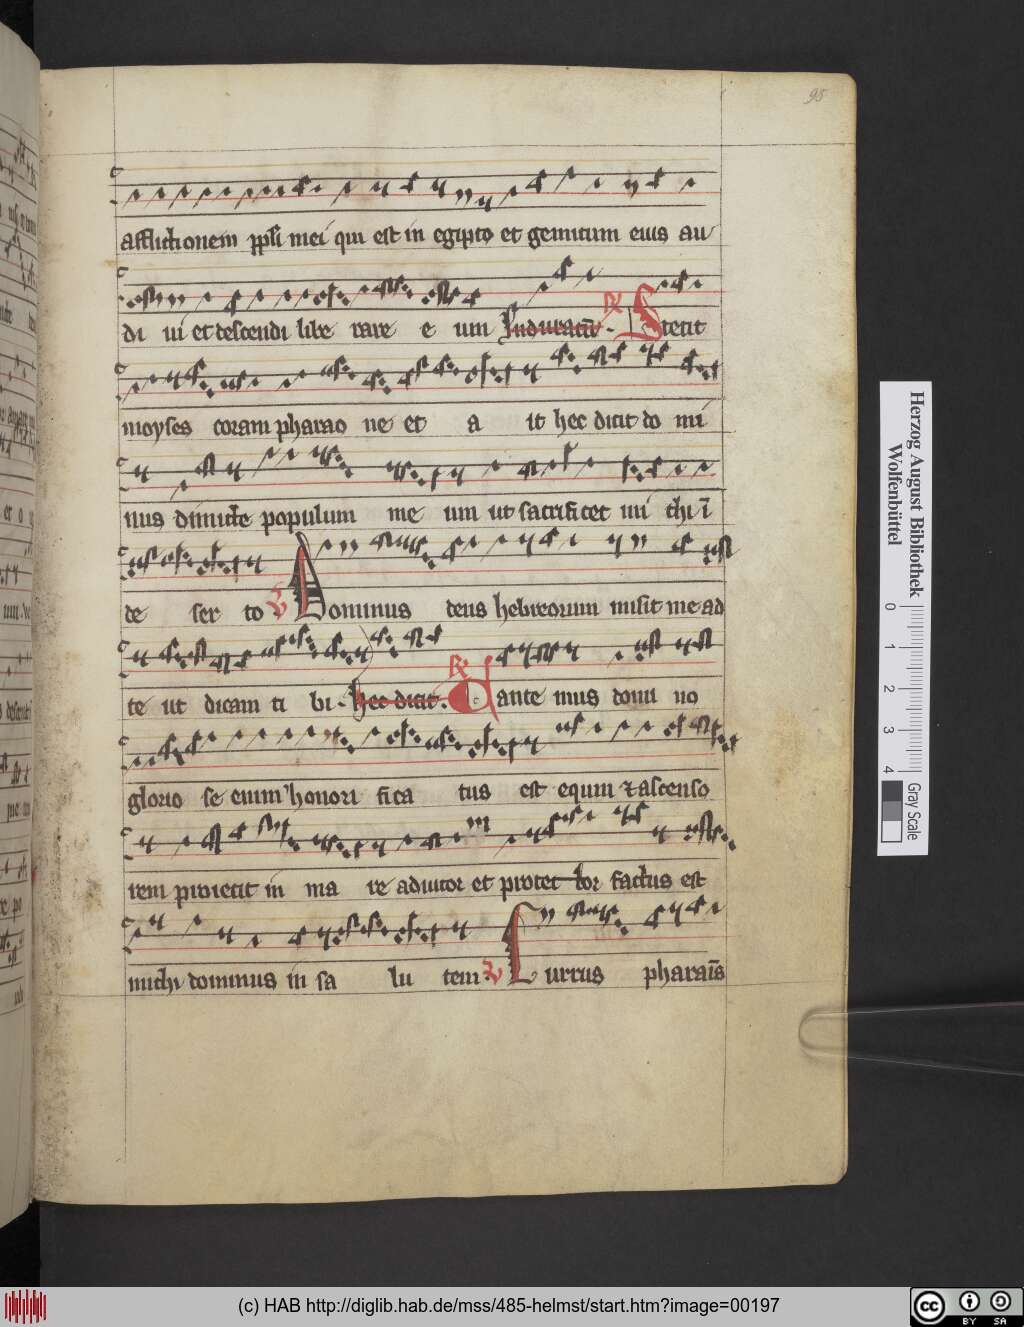 95
afflictionem ppli mei qui est in egipto et gemitum eius au
di ui et descendi libe rare e um Induratū. ℟ Stetit
moyses coram pharao ne et a it hec dicit do mi
nus dimitte populum me um ut sacrificet mi chi ī
de ser to ℣ Dominus deus hebreorum misit me ad
te ut dicam ti bi. hec dicit. ℟ Cante mus domi no
glorio se enim honori fica tus est equm ⁊ ascenso
rem proiecit in ma re adiutor et protec tor factus est
michi dominus in sa lu tem ℣ Currus pharaīs
Herzog August Bibliothek
Wolfenbüttel
0 1 2 3 4
Gray Scale
(c) HAB http://diglib.hab.de/mss/485-helmst/start.htm?image=00197
cc BY SA